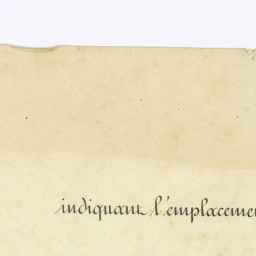 indiquant l'emplaceme